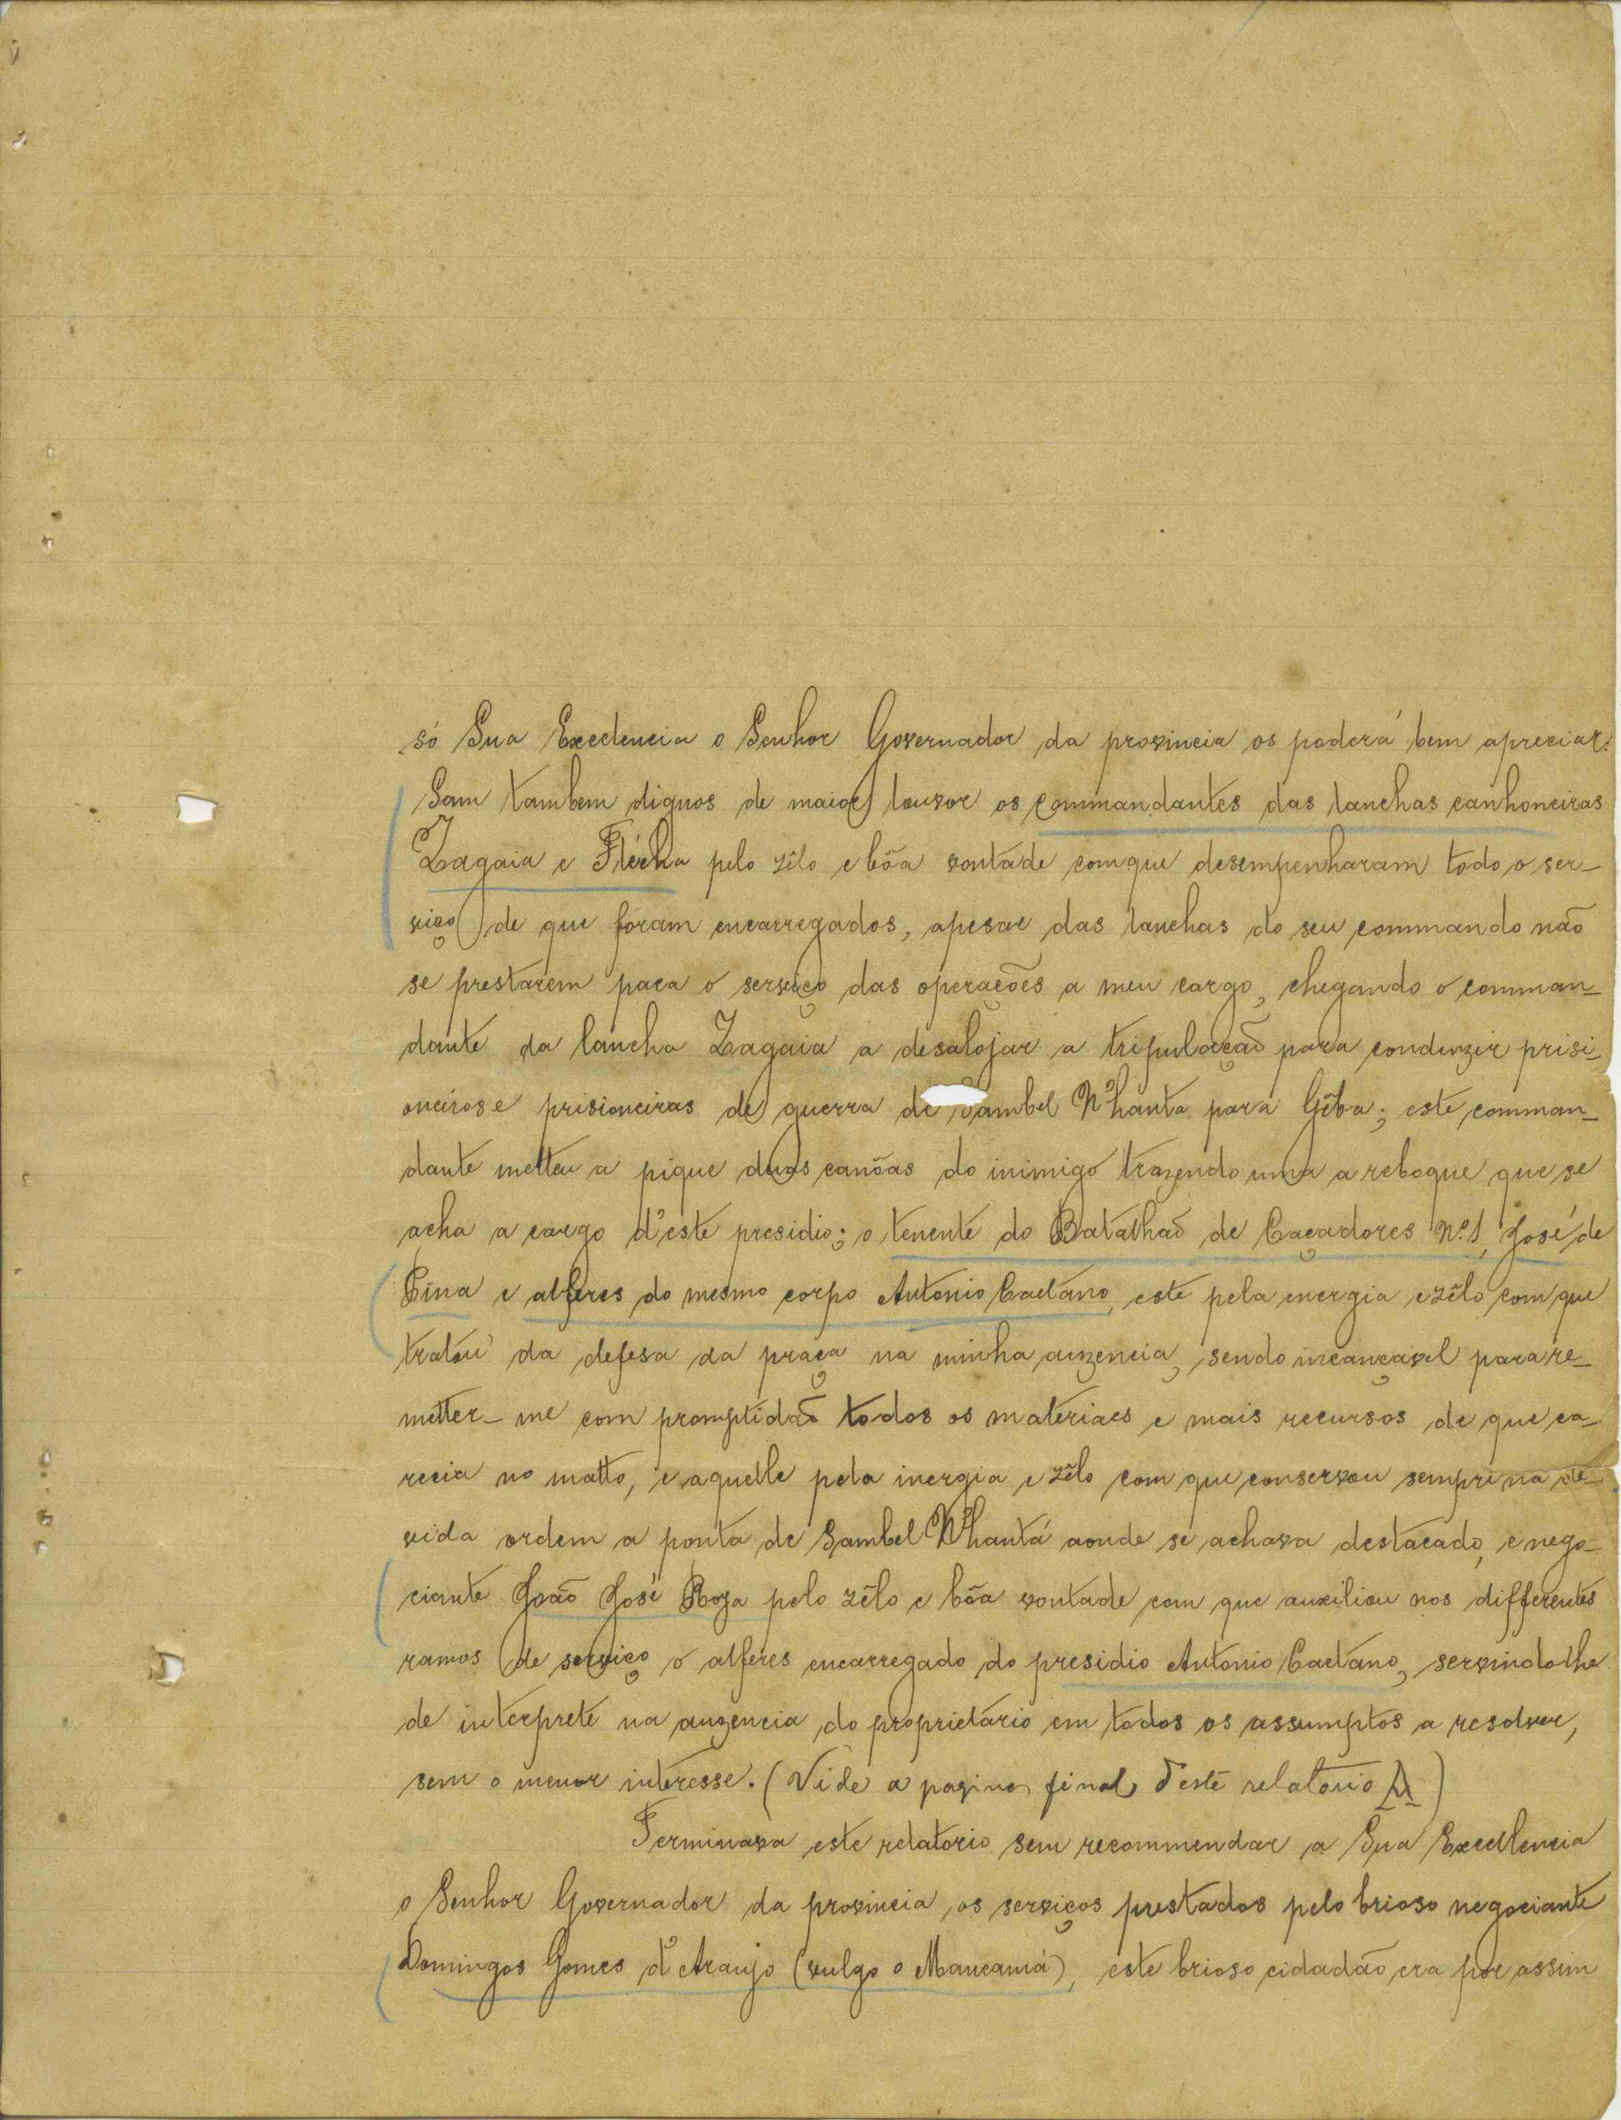 só Sua Excelencia o Senhor Governador da provincia os poderá bem apreciar.
Sam tambem dignos de maior louvor os commandantes das lanchas canhoneiras
Zagaia e Flécha pelo zêlo e bôa vontade com que desempenharam todo o ser-
viço de que foram encarregados, apesar das lanchas do seu commando não
se prestarem para o serviço das operações a meu cargo, chegando o comman-
dante da lancha Zagaia a desalojar a tripulação para conduzir prisi-
oneiros e prisioneiras de guerra de Sambel N'hanta para Gêba; este comman-
dante metteu a pique duas canôas do inimigo trazendo uma a reboque que se
acha a cargo d'este presidio; o tenente do Batalhaõ de Caçadores Nº1, José de
Pina e alferes do mesmo corpo Antonio Caetano, este pela energia e zêlo com que
tratou da defesa da praça na minha auzencia, sendo incançavel para re-
metter-me com promptidaõ todos os materiaes e mais recursos de que ca-
recia no matto, e aquelle pela inergia e zêlo com que conservou sempre na de-
vida ordem a ponta de Sambel N'hantá aonde se achava destacado, e nego-
ciante João José Roza pelo zêlo e bôa vontade com que auxiliou nos differentes
ramos de serviço o alferes encarregado do presidio Antonio Caetano, servindo lhe
de interprete na auzencia do proprietário em todos os assumptos a resolver,
sem o menor interesse. (Vide a pagina final d'este relatorio A)
Terminava este relatorio sem recommendar a Sua Excellencia
o Senhor Governador da provincia os serviços prestados pelo brioso negociante
Domingos Gomes d'Araujo (vulgo o Mancamá), este brioso cidadão era por assim